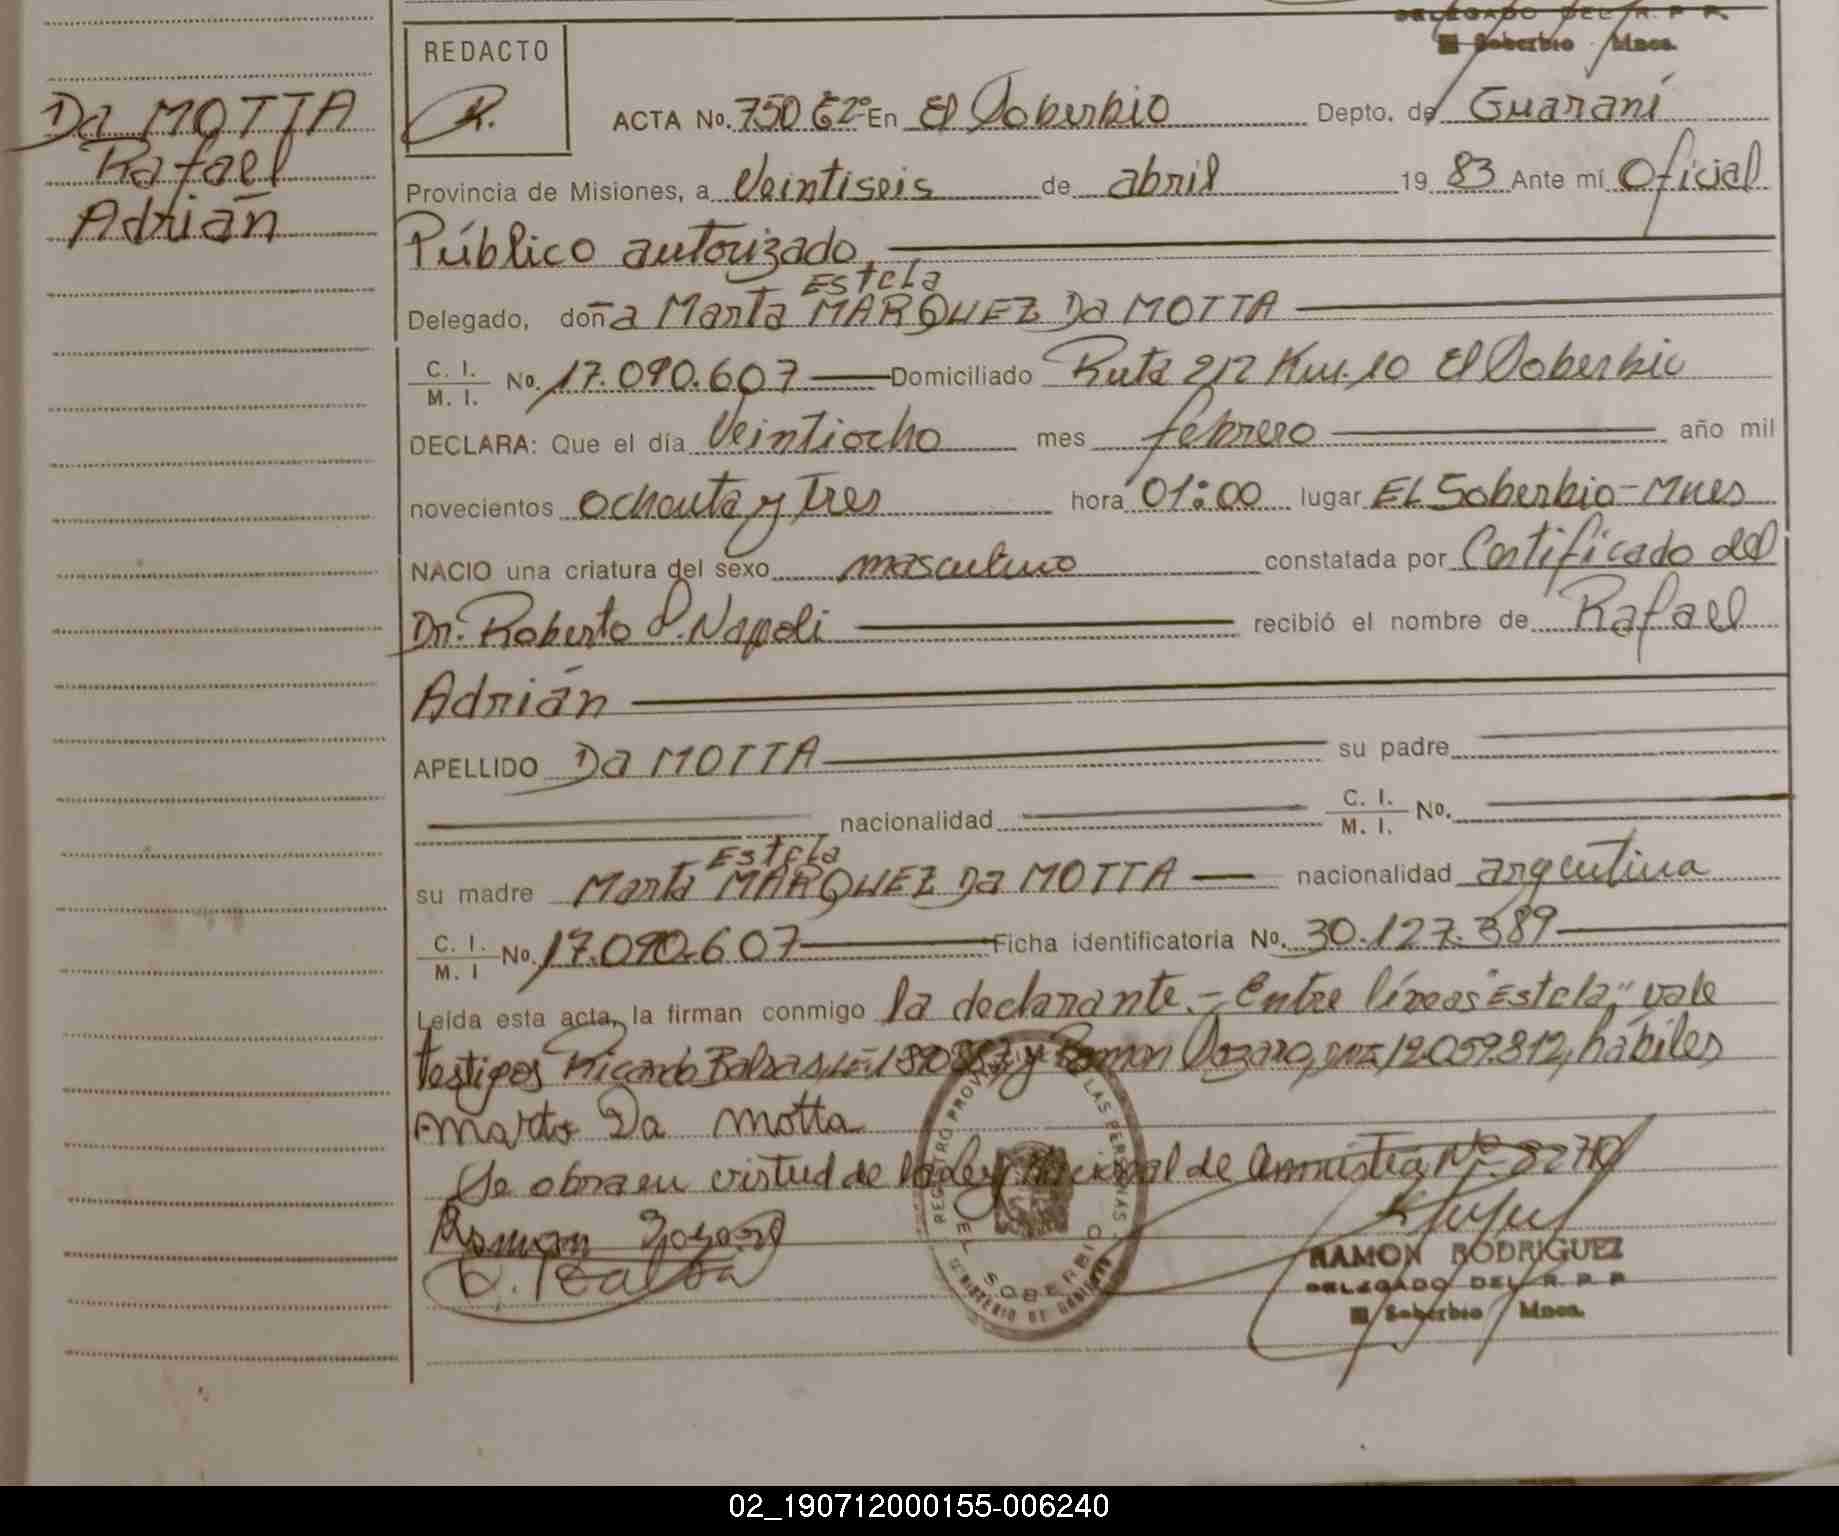 DELEGADO DEL R. P. P.
El Soberbio Mnes.
Da MOTTA
Rafael
Adrián
REDACTO
R.
ACTA No. 750 Eº2 En El Soberbio Depto. de Guaraní
Provincia de Misiones, a Veintiseis de abril 19 83 Ante mí Oficial
Público autorizado
Estela
Delegado, doña Marta MARQUEZ Da MOTTA
C. I.
M. I. No. 17.090.607 Domiciliado Ruta 212 Km. 10 El Soberbio
DECLARA: Que el día Veintiocho mes febrero año mil
novecientos ochenta y tres hora 01:00 lugar EL Soberbio-Mnes
NACIO una criatura del sexo masculino constatada por Certificado del
Dr. Roberto P. Napoli recibió el nombre de Rafael
Adrián
APELLIDO Da MOTTA su padre
nacionalidad C. I.
M. I. No.
Estela
su madre Marta MARQUEZ Da MOTTA nacionalidad argentina
C. I.
M. I No. 17.090.607 Ficha identificatoria No. 30.127.389
Leída esta acta, la firman conmigo la declarante.- Entre líneas "Estela," vale
testigos Ricardo y Ramon 12.059.812, hábiles
Marta Da Motta
Se obra en virtud de la ley Nacional de Amnistia Nº
Ramon
REGISTRO PROVINCIAL DE LAS PERSONAS
EL SOBERBIO
MINISTERIO DE GOBIERNO
RAMON RODRIGUEZ
DELEGADO DEL R. P. P.
El Soberbio Mnes.
02_190712000155-006240